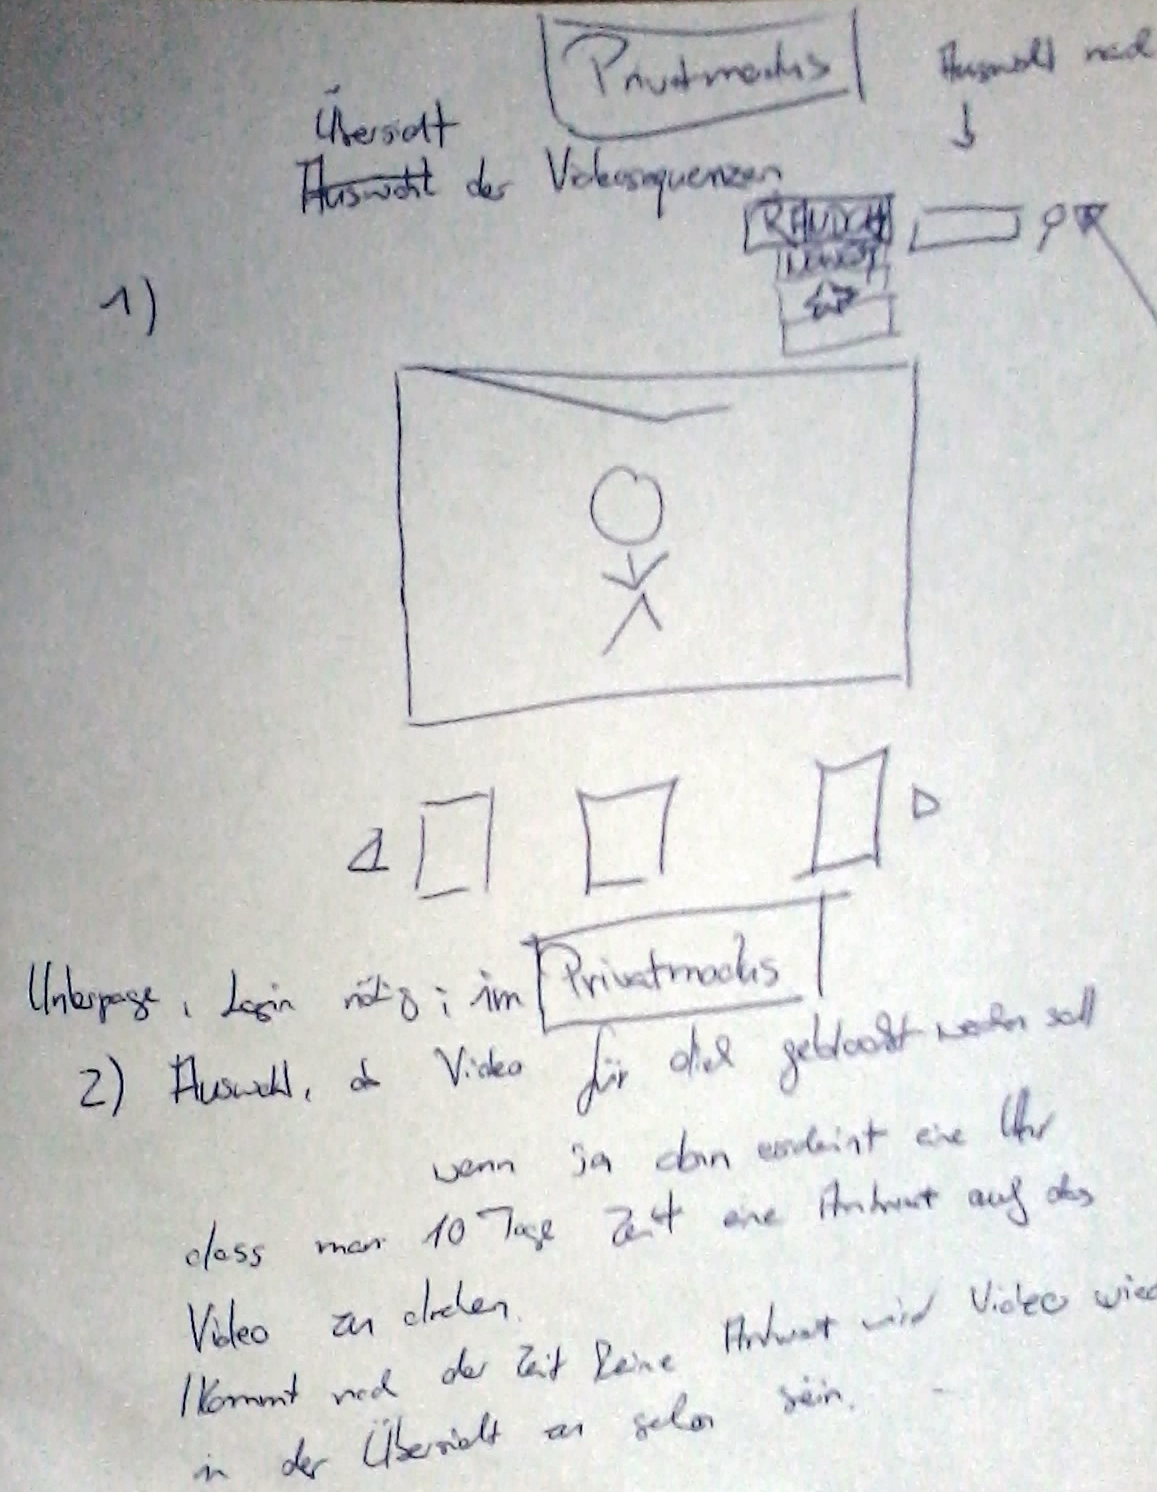 Privatmodus
Auswahl nach
Übersicht
Auswahl der Videosequenzen
RANDOM
1)
Unterpage, Login nötig; im Privatmodus
2) Auswahl, ob Video für dich geblockt werden soll
wenn ja dann erscheint eine Uhr
dass man 10 Tage Zeit eine Antwort auf das
Video zu drehen.
Kommt nach der Zeit keine Antwort wird Video wied
in der Übersicht zu sehen sein.